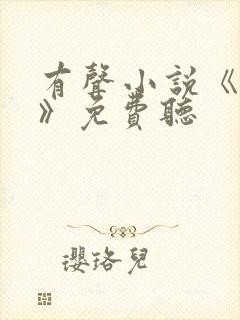 有聲小說《
》免費聽
瓔珞兒